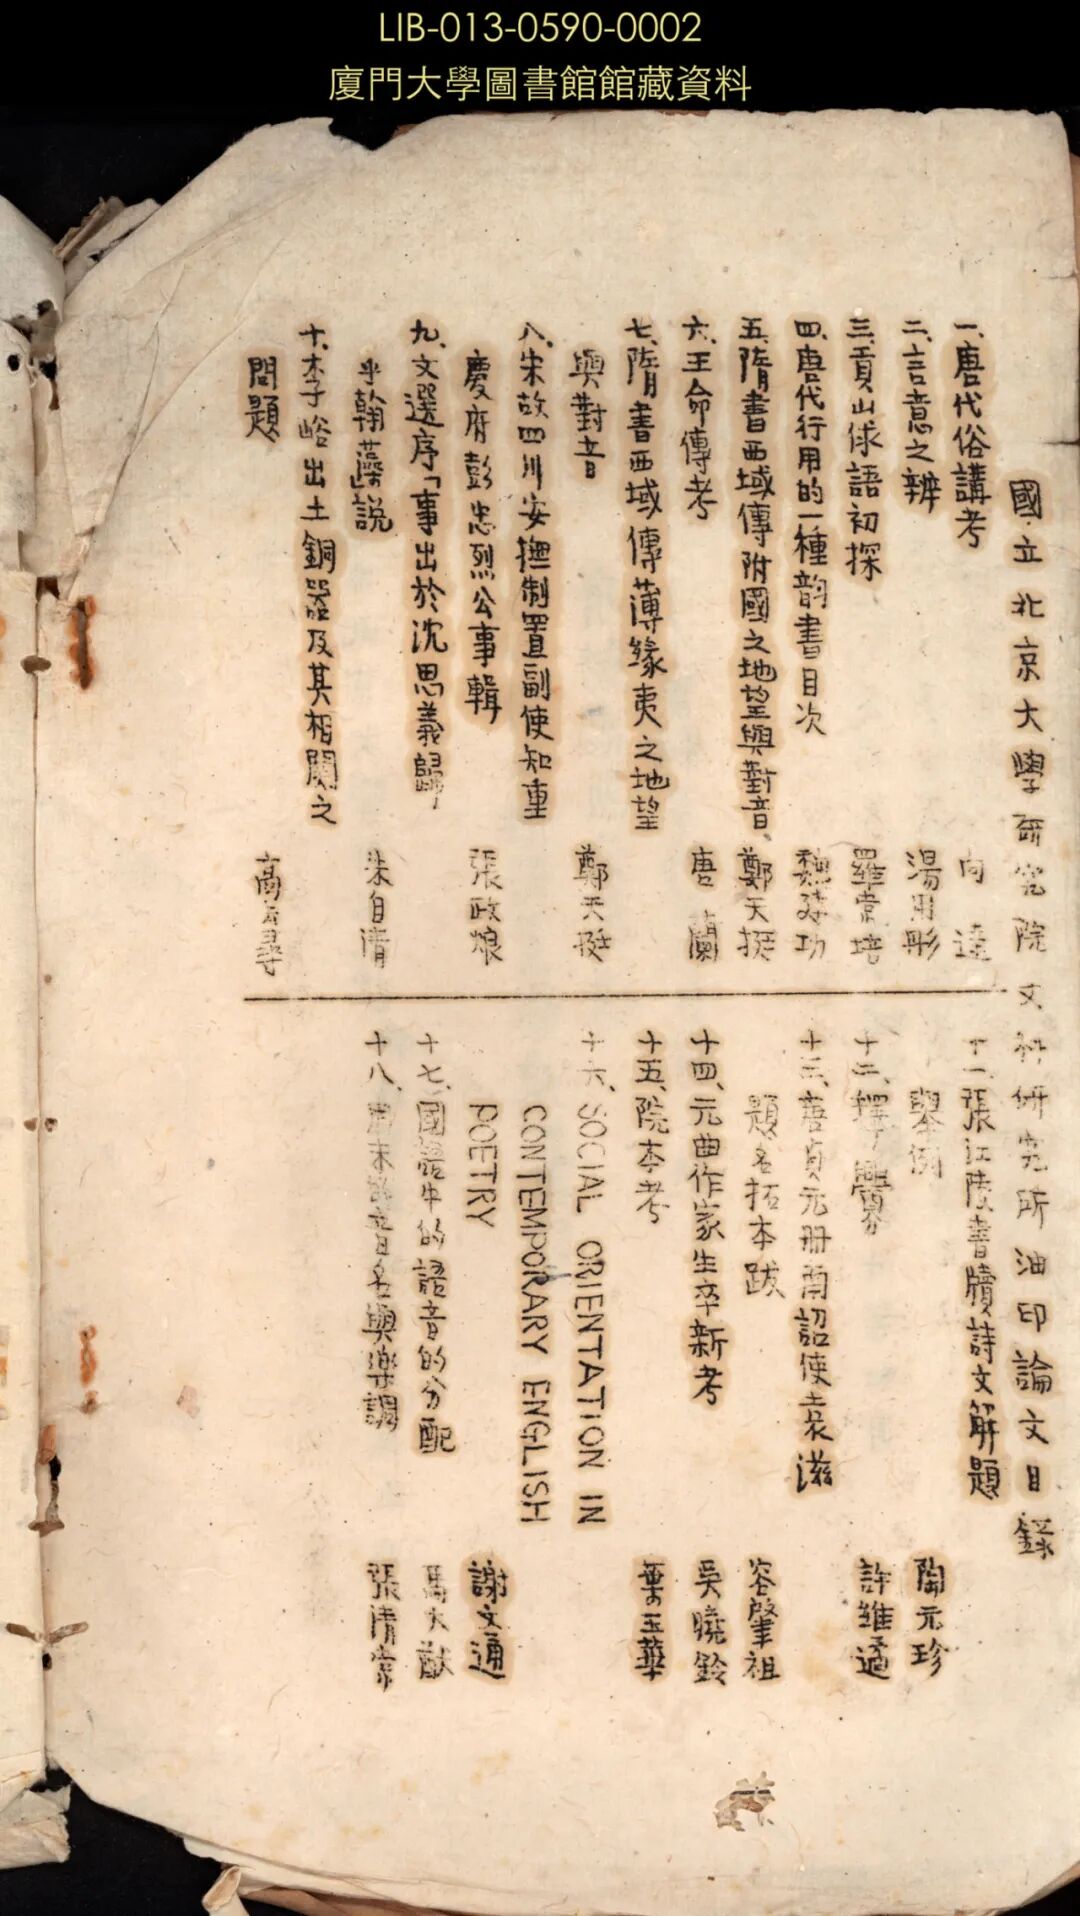 LIB-013-0590-0002
廈門大學圖書館館藏資料
國立北京大學研究院文科研究所油印論文目錄
一、唐代俗講考 向達
二、言意之辨 湯用彤
三、貢山俅語初探 羅常培
四、唐代行用的一種韵書目次 魏建功
五、隋書西域傳附國之地望與對音、 鄭天挺
六、王命傳考 唐蘭
七、隋書西域傳薄緣夷之地望
與對音 鄭天挺
八、宋故四川安撫制置副使知重
慶府彭忠烈公事輯 張政烺
九、文選序「事出於沈思義歸
乎翰藻」說 朱自清
十、李峪出土銅器及其相關之
問題 高去尋
十一、張江陵書牘詩文解題
舉例 陶元珍
十二、釋釁 許維遹
十三、唐貞元册南詔使袁滋
題名拓本跋 容肇祖
十四、元曲作家生卒新考 吳曉鈴
十五、院本考 葉玉華
十六、SOCIAL ORIENTATION IN
CONTEMPORARY ENGLISH
POETRY 謝文通
十七、國語中的語音的分配 馬大猷
十八、周末 音名與樂調 張清常